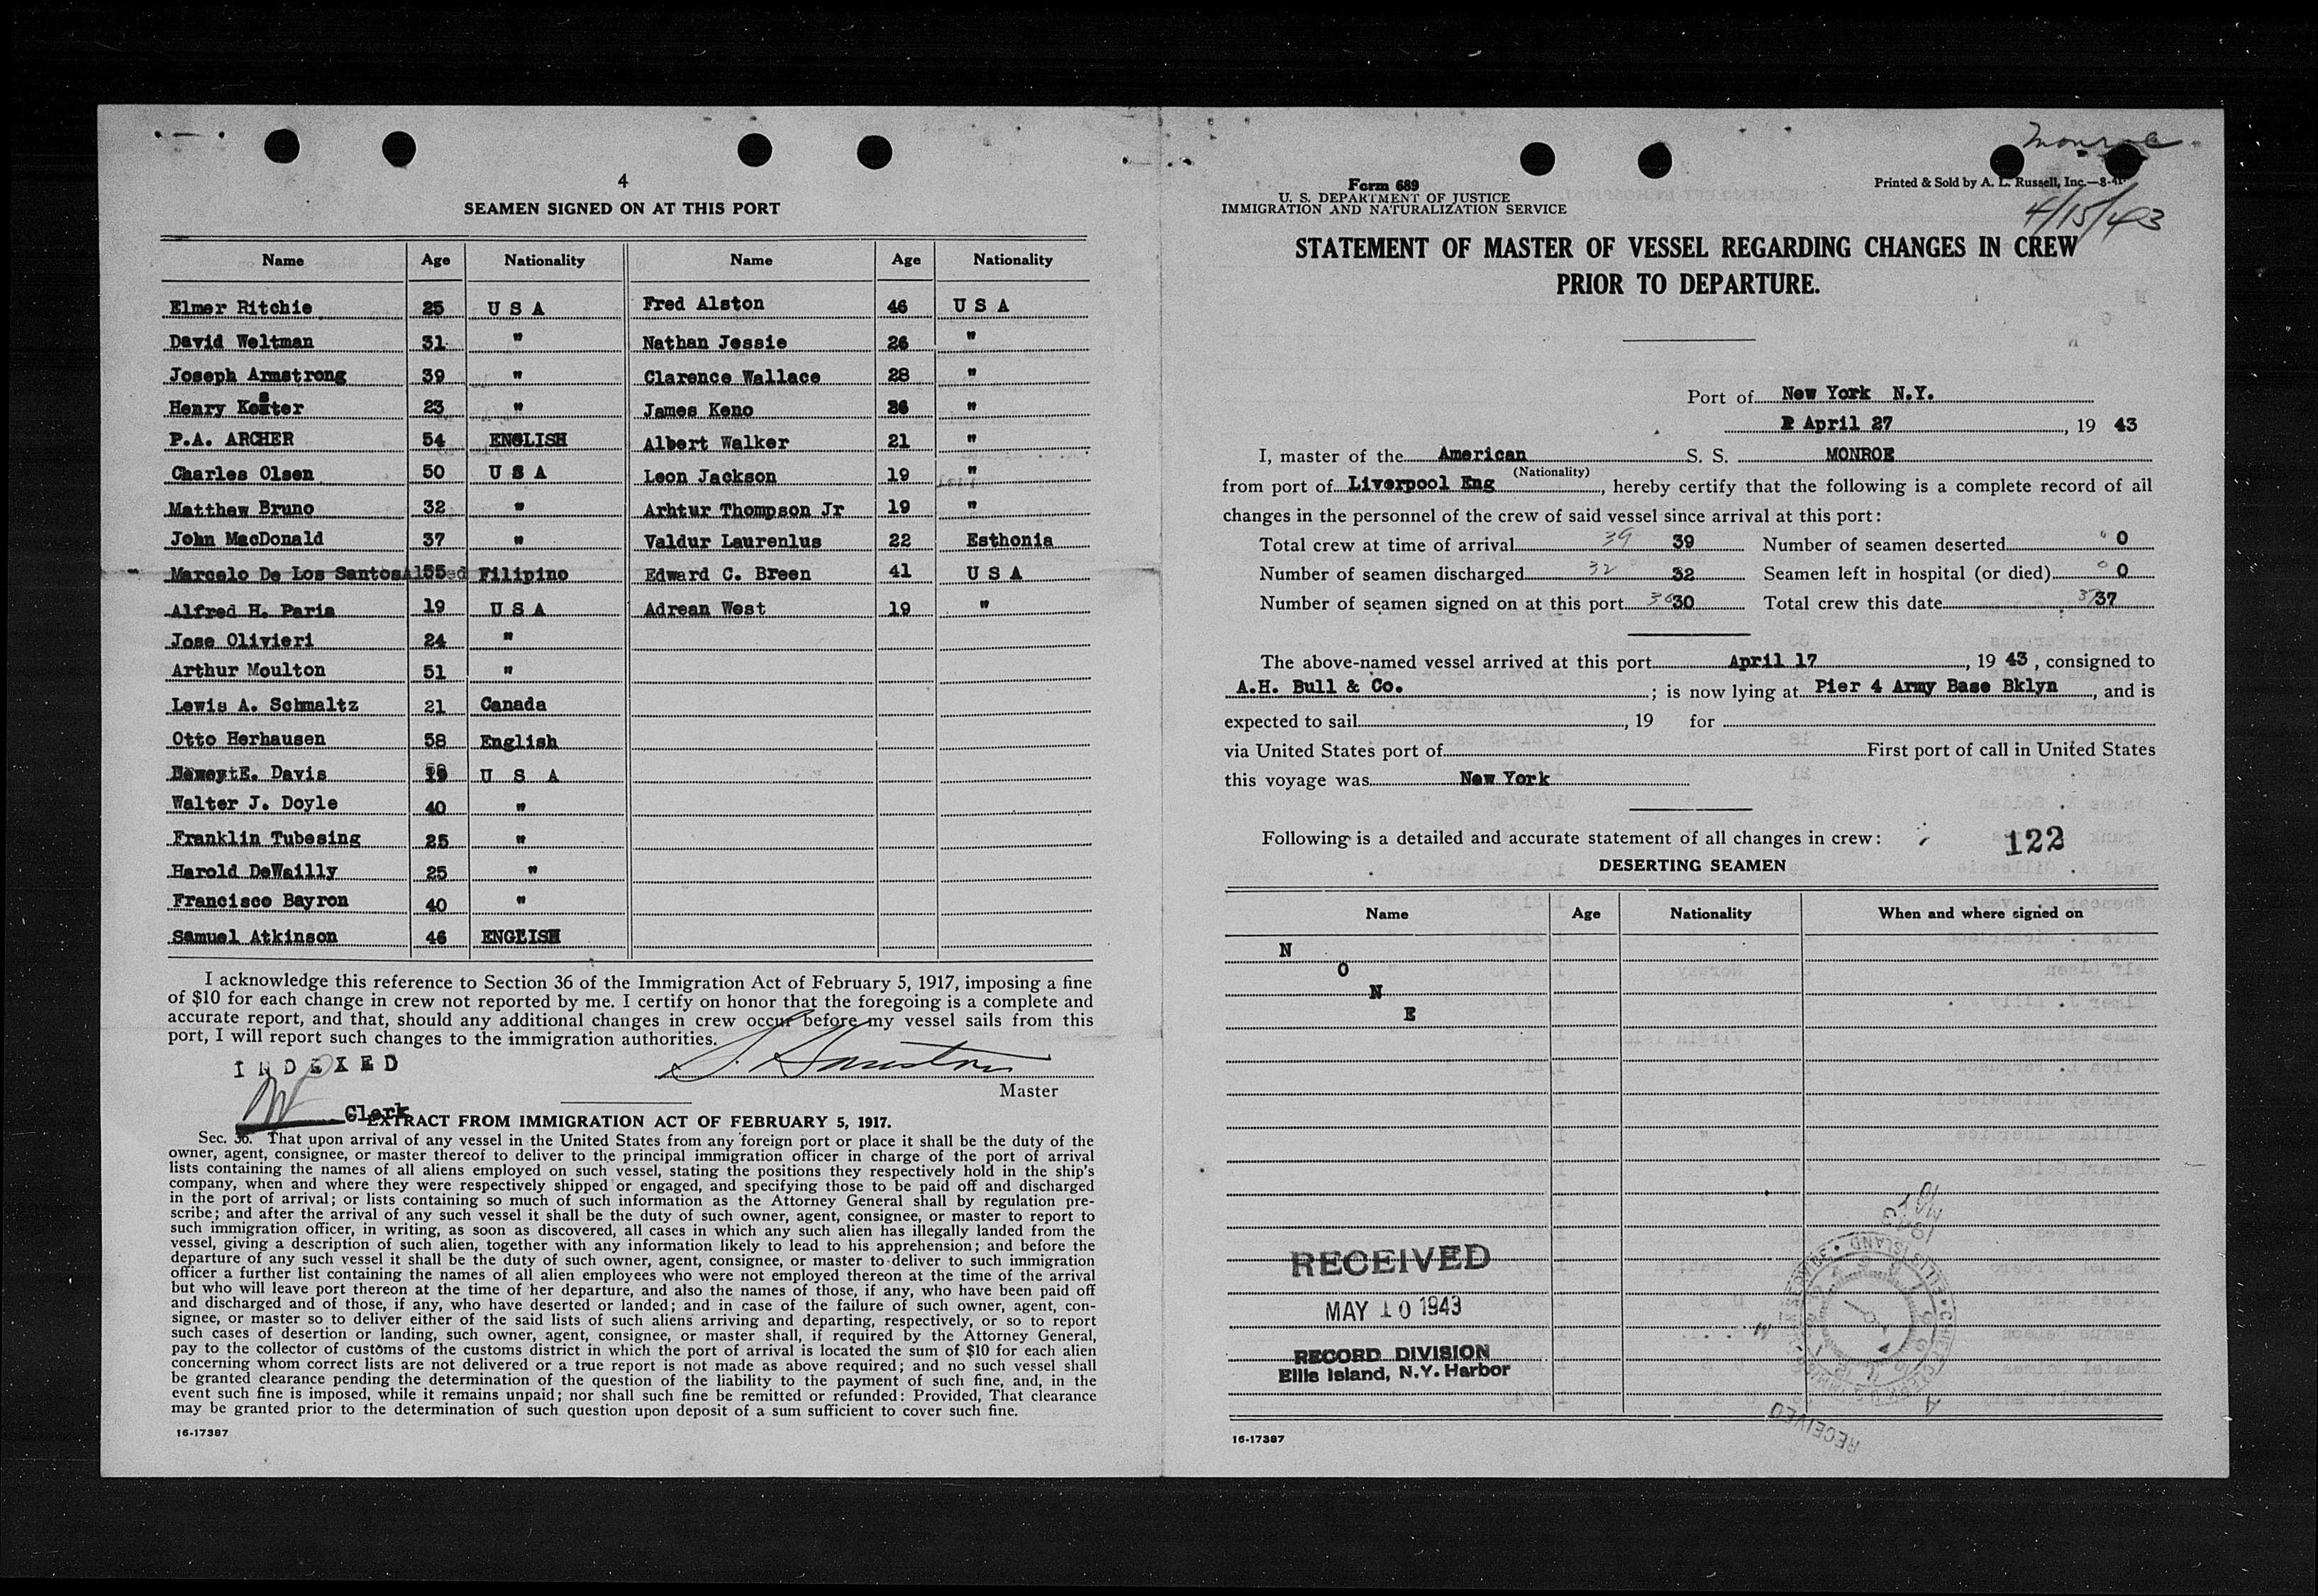 4
SEAMEN SIGNED ON AT THIS PORT
Name Age Nationality Name Age Nationality
Elmer Ritchie 25 U S A Fred Alston 46 U S A
David Weltman 31 " Nathan Jessie 26 "
Joseph Armstrong 39 " Clarence Wallace 28 "
Henry Koster 23 " James Keno 26 "
P.A. ARCHER 54 ENGLISH Albert Walker 21 "
Charles Olsen 50 U S A Leon Jackson 19 "
Matthew Bruno 32 " Arhtur Thompson Jr 19 "
John MacDonald 37 " Valdur Laurenlus 22 Esthonia
Marcelo De Los Santos 55 Filipino Edward C. Breen 41 U S A
Alfred H. Paris 19 U S A Adrean West 19 "
Jose Olivieri 24 "
Arthur Moulton 51 "
Lewis A. Schmaltz 21 Canada
Otto Herhausen 58 English
E. Davis U S A
Walter J. Doyle 40 "
Franklin Tubesing 25 "
Harold DeWailly 25 "
Francisco Bayron 40 "
Samuel Atkinson 46 ENGLISH
I acknowledge this reference to Section 36 of the Immigration Act of February 5, 1917, imposing a fine
of $10 for each change in crew not reported by me. I certify on honor that the foregoing is a complete and
accurate report, and that, should any additional changes in crew occur before my vessel sails from this
port, I will report such changes to the immigration authorities.
INDEXED
Master
Clerk
EXTRACT FROM IMMIGRATION ACT OF FEBRUARY 5, 1917.
Sec. 36. That upon arrival of any vessel in the United States from any foreign port or place it shall be the duty of the
owner, agent, consignee, or master thereof to deliver to the principal immigration officer in charge of the port of arrival
lists containing the names of all aliens employed on such vessel, stating the positions they respectively hold in the ship's
company, when and where they were respectively shipped or engaged, and specifying those to be paid off and discharged
in the port of arrival; or lists containing so much of such information as the Attorney General shall by regulation pre-
scribe; and after the arrival of any such vessel it shall be the duty of such owner, agent, consignee, or master to report to
such immigration officer, in writing, as soon as discovered, all cases in which any such alien has illegally landed from the
vessel, giving a description of such alien, together with any information likely to lead to his apprehension; and before the
departure of any such vessel it shall be the duty of such owner, agent, consignee, or master to deliver to such immigration
officer a further list containing the names of all alien employees who were not employed thereon at the time of the arrival
but who will leave port thereon at the time of her departure, and also the names of those, if any, who have been paid off
and discharged and of those, if any, who have deserted or landed; and in case of the failure of such owner, agent, con-
signee, or master so to deliver either of the said lists of such aliens arriving and departing, respectively, or so to report
such cases of desertion or landing, such owner, agent, consignee, or master shall, if required by the Attorney General,
pay to the collector of customs of the customs district in which the port of arrival is located the sum of $10 for each alien
concerning whom correct lists are not delivered or a true report is not made as above required; and no such vessel shall
be granted clearance pending the determination of the question of the liability to the payment of such fine, and, in the
event such fine is imposed, while it remains unpaid; nor shall such fine be remitted or refunded: Provided, That clearance
may be granted prior to the determination of such question upon deposit of a sum sufficient to cover such fine.
16-17387
Monroe
Form 689
U. S. DEPARTMENT OF JUSTICE
IMMIGRATION AND NATURALIZATION SERVICE
Printed & Sold by A. L. Russell, Inc.—8-41
4/15/43
STATEMENT OF MASTER OF VESSEL REGARDING CHANGES IN CREW
PRIOR TO DEPARTURE.
Port of New York N.Y.
April 27, 19 43
I, master of the American S. S. MONROE
(Nationality)
from port of Liverpool Eng, hereby certify that the following is a complete record of all
changes in the personnel of the crew of said vessel since arrival at this port:
Total crew at time of arrival 39 39 Number of seamen deserted 0 0
Number of seamen discharged 32 32 Seamen left in hospital (or died) 0 0
Number of seamen signed on at this port 30 30 Total crew this date 37 37
The above-named vessel arrived at this port April 17, 19 43, consigned to
A.H. Bull & Co.; is now lying at Pier 4 Army Base Bklyn, and is
expected to sail, 19 for
via United States port of First port of call in United States
this voyage was New York
Following is a detailed and accurate statement of all changes in crew:
122
DESERTING SEAMEN
Name Age Nationality When and where signed on
N
O
N
E
RECEIVED
MAY 10 1943
RECORD DIVISION
Ellis Island, N.Y. Harbor
RECEIVED
16-17387